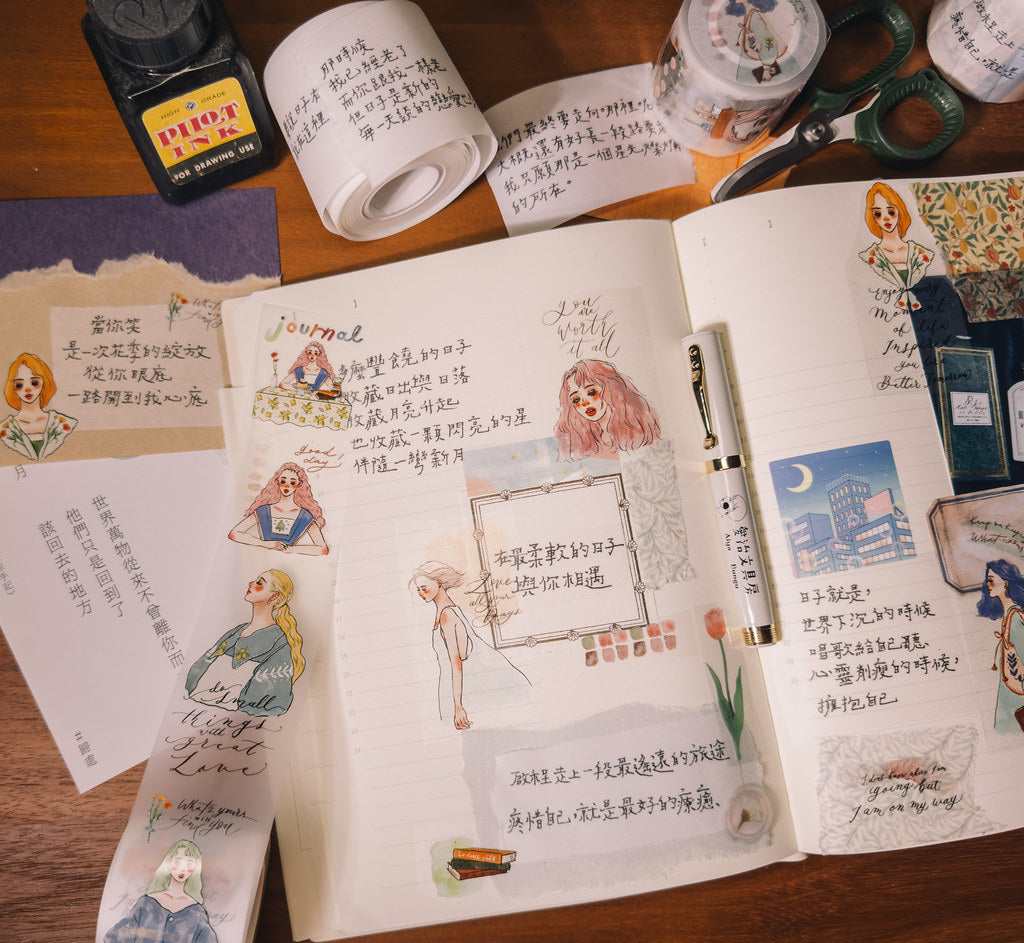 HIGH GRADE
PILOT
INK
FOR DRAWING USE
那時候
我已經老了
而你跟我一樣老
但日子是新的
每一天談的戀愛
們最終要走向"那裡"
大概還有好長一段路要走
我只願那是一個星光燦爛
的所在。
啟程走上
疼惜自己,就是
What's yours
will
find you
當你笑
是一次花季的綻放
從你眼底
一路開到我心底
月
世界萬物從來不曾離你而
他們只是回到了
該回去的地方
#歸處
journal
多麼豐饒的日子
收藏日出與日落
收藏月亮升起
也收藏一顆閃亮的星
伴隨一彎新月
good
day!
you
are
worth
it all
在最柔軟的日子
與你相遇
Love
all
your
啟程走上一段最遙遠的旅途
疼惜自己,就是最好的療癒、
do small
things
with
great
Love
What's yours
will
find you
愛治文具房
Aiya
Bungu
Enjoy every
Moment
of life
Inspired
you
Better Tomorrow
日子就是,
世界下沉的時候
唱歌給自己聽
心靈削瘦的時候,
擁抱自己
I don't know where I am
going but
I am on my way